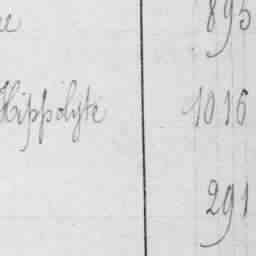 895
Hippolyte 1016
291